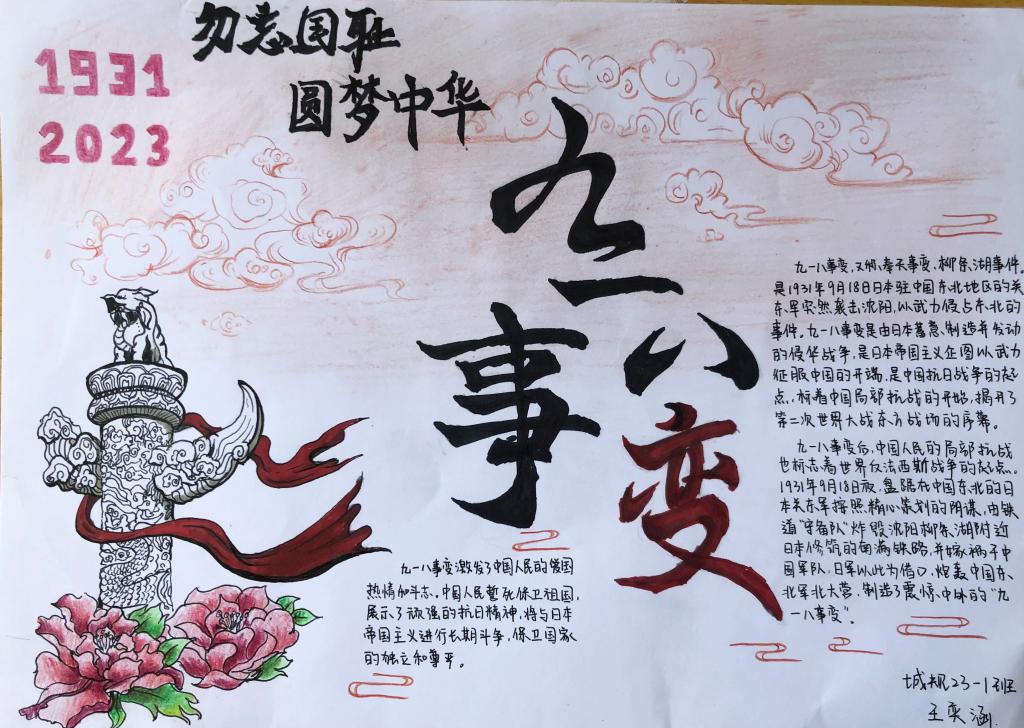 1931
2023
勿忘国耻
圆梦中华
九一八
事变
九一八事变,又称、奉天事变、柳条湖事件。
是1931年9月18日日本驻中国东北地区的关
东军突然袭击沈阳,以武力侵占东北的
事件。九一八事变是由日本蓄意制造并发动
的侵华战争,是日本帝国主义企图以武力
征服中国的开端,是中国抗日战争的起
点,标志着中国局部抗战的开始,揭开了
第二次世界大战东方战场的序幕。
九一八事变后,中国人民的局部抗战
也标志着世界反法西斯战争的起点。
1931年9月18日夜,盘踞在中国东北的日
本关东军按照精心策划的阴谋,由铁
道“守备队”炸毁沈阳柳条湖附近
日本修筑的南满铁路,并嫁祸于中
国军队,日军以此为借口,炮轰中国东
北军北大营,制造了震惊中外的“九
一八事变”。
九一八事变激发了中国人民的爱国
热情和斗志、中国人民誓死保卫祖国,
展示了顽强的抗日精神,将与日本
帝国主义进行长期斗争,保卫国家
的独立和尊严。
城规23-1班
王奕涵